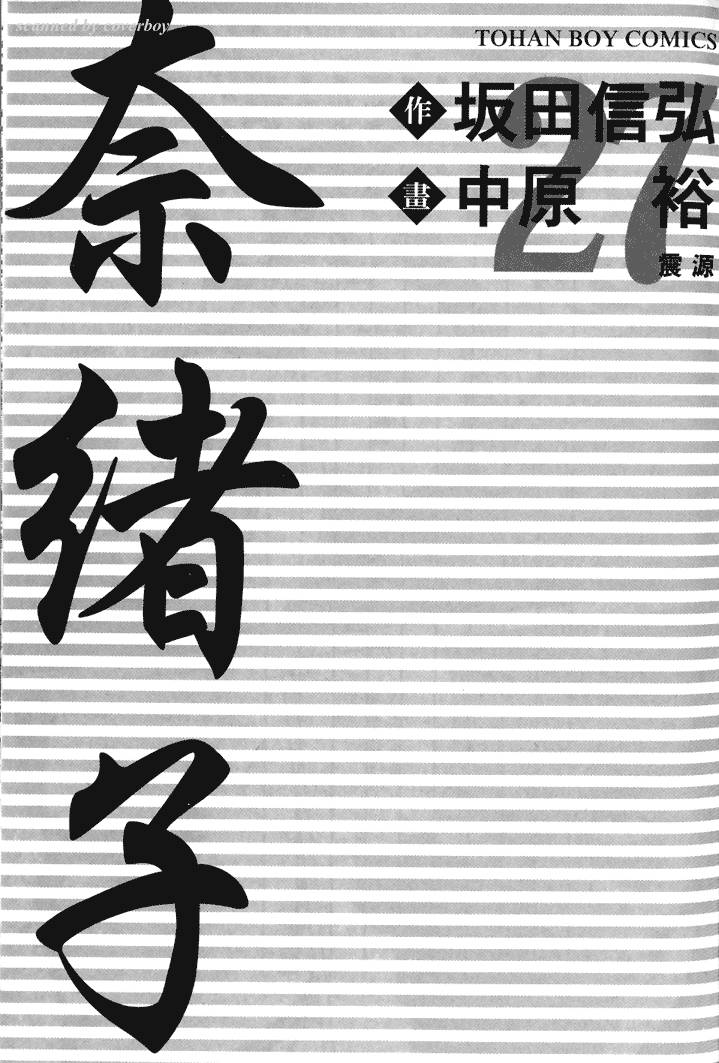 scanned by coverboy
TOHAN BOY COMICS
作 坂田信弘
畫 中原 裕
27
震源
奈緒子